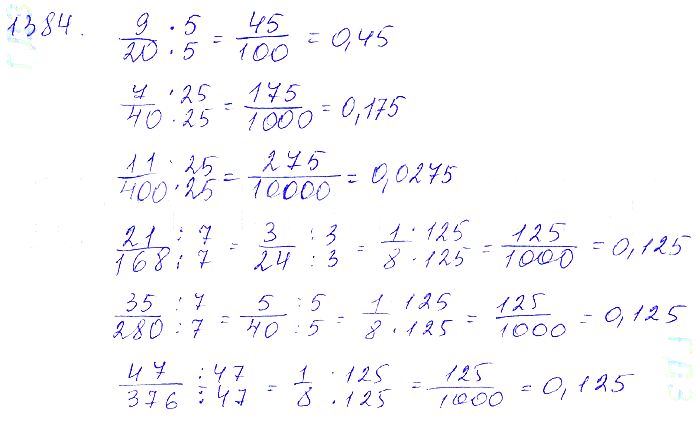 1384. 9/20 · 5/· 5 = 45/100 = 0,45
7/40 · 25/· 25 = 175/1000 = 0,175
11/400 · 25/· 25 = 275/10000 = 0,0275
21/168 : 7/: 7 = 3/24 : 3/: 3 = 1/8 · 125/· 125 = 125/1000 = 0,125
35/280 : 7/: 7 = 5/40 : 5/: 5 = 1/8 · 125/· 125 = 125/1000 = 0,125
47/376 : 47/: 47 = 1/8 · 125/· 125 = 125/1000 = 0,125